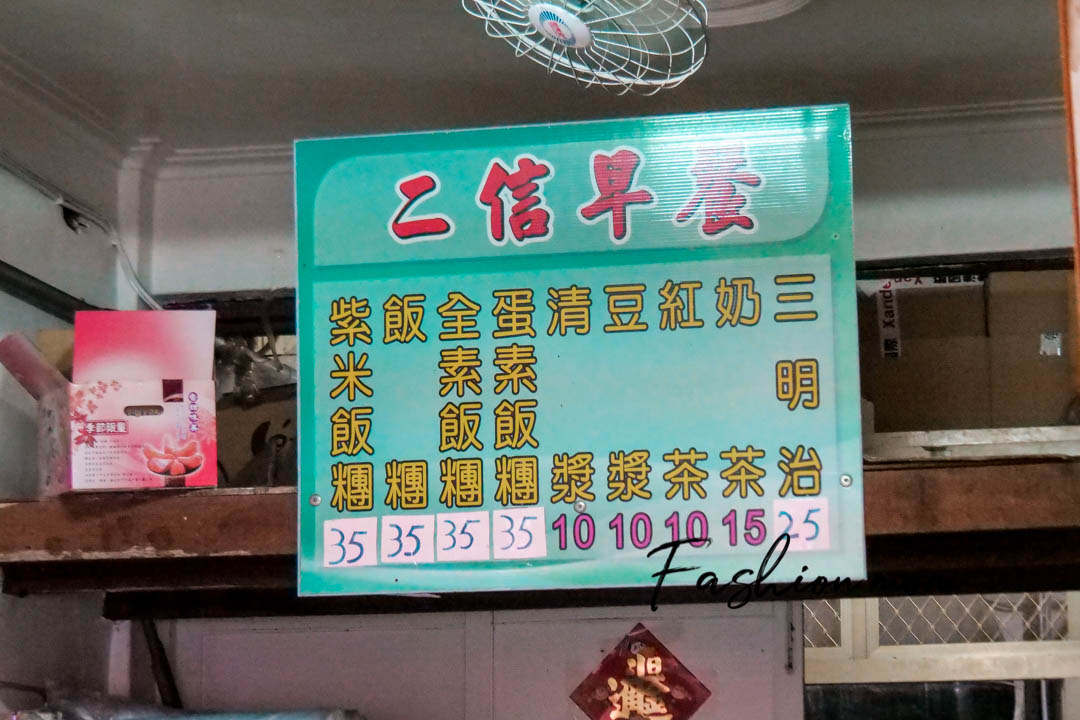 二信早餐
三明治 25
奶茶 15
紅茶 10
豆漿 10
清漿 10
蛋素飯糰 35
全素飯糰 35
飯糰 35
紫米飯糰 35
Fashion
季節限量
Xande